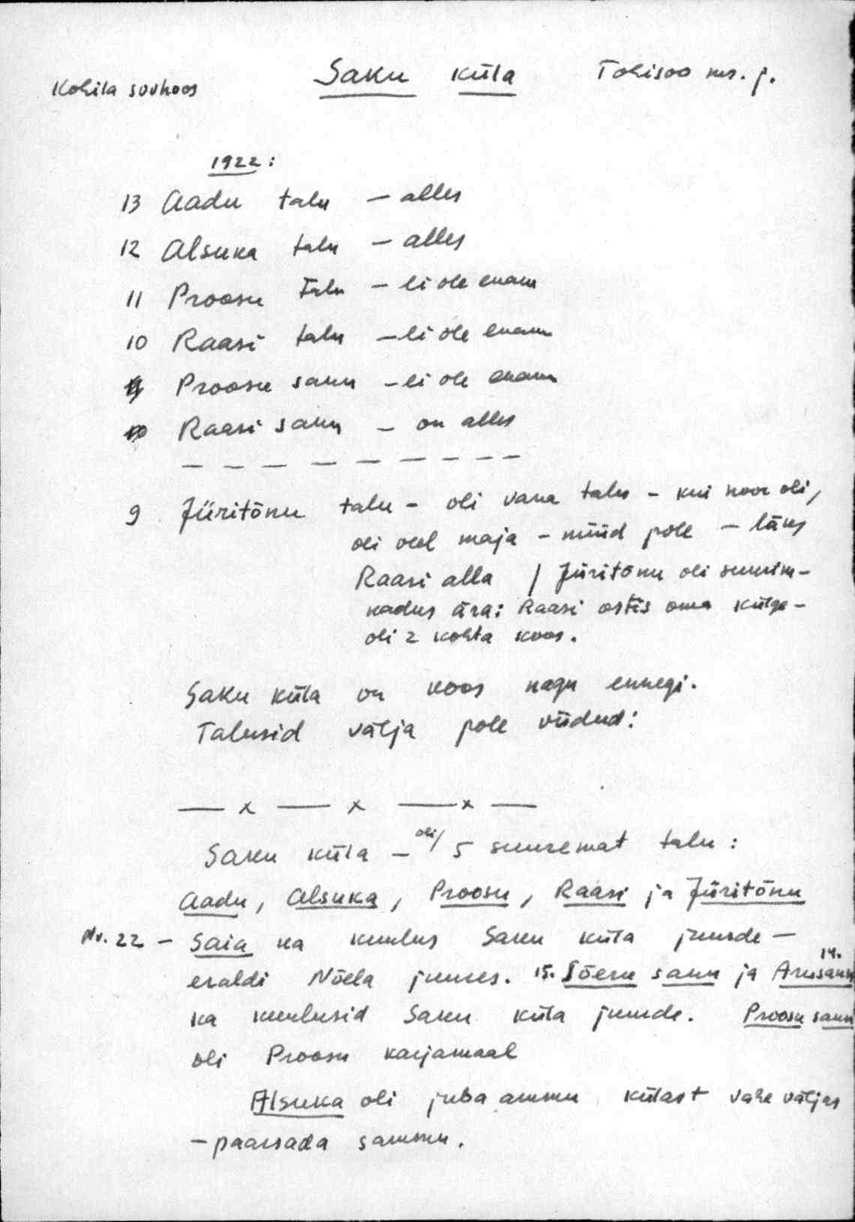 Kohila sovhoos Saku küla Tohisoo ms. j.
1922:
13 Aadu talu — alles
12 Alsuka talu — alles
11 Proosu talu — ei ole enam
10 Raasi talu — ei ole enam
Proosu saun — ei ole enam
Raasi saun — on alles
9 Jüritõnu talu — oli vana talu — kui noor oli,
oli veel maja — nüüd pole — läks
Raasi alla / Jüritõnu oli suurim-
nadus ära; Raasi ostis oma külge —
oli 2 kohta koos.
Saku küla on koos nagu ennegi.
Talusid välja pole viidud!
— x — x — x —
Saku küla — oli/ 5 suuremat talu:
Aadu, Alsuka, Proosu, Raasi ja Jüritõnu
Nr. 22 — Saia ka kuulus Saku küla juurde —
eraldi Nõela juures. 15. Sõeru saun ja 14. Arusaun
ka kuulusid Saku küla juurde. Proosu saun
oli Proosu karjamaal
Alsuka oli juba ammu külast vähe väljas
— paarsada sammu.